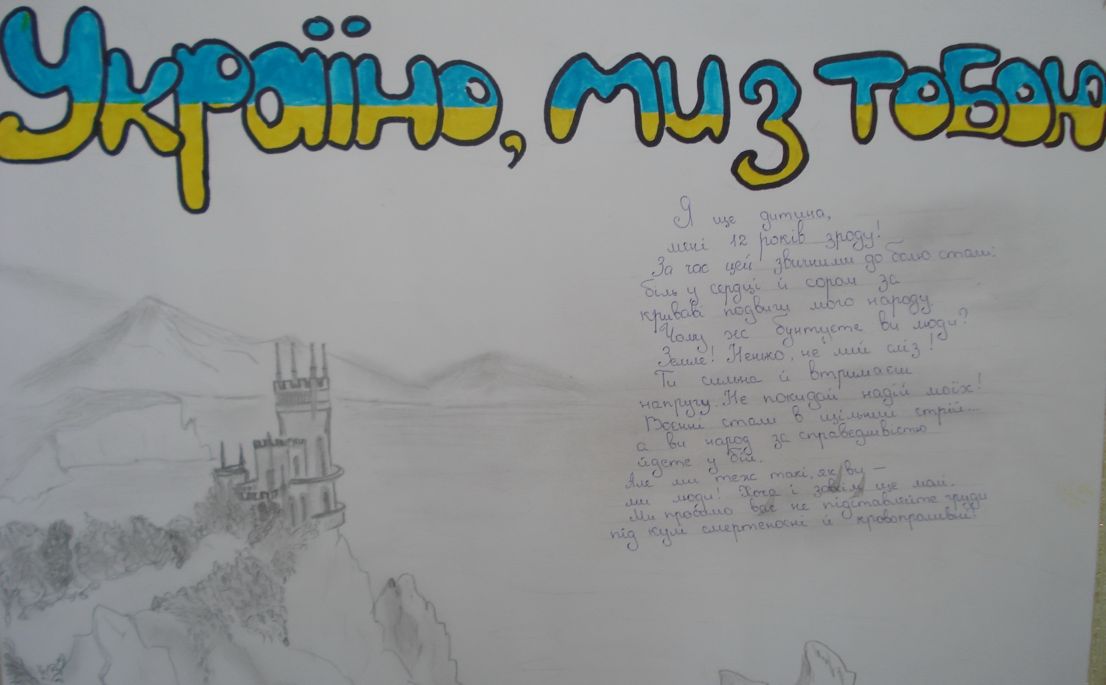 Україно, ми з тобою
Я ще дитина,
мені 12 років зроду!
За час цей звичними до болю стали:
біль у серці й сором за
криваві подвиги мого народу.
Чому ж бунтуєте ви люди?
Земле! Ненько, не лий сліз!
Ти сильна й втримаєш
напругу. Не покидай надій моїх!
Воєнні стали в щільний стрій...
а ви народ за справедливістю
йдете у бій.
Але ми теж такі, як ви –
ми люди! Хоча і зовсім ще малі.
Ми просимо вас не підставляйте груди
під кулі смертеносні й кровопроливні!